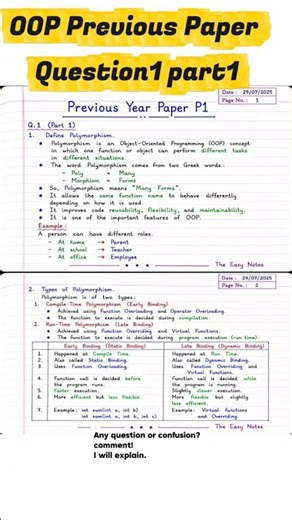 OOP Previous Paper
Question1 part1
Date : 29/07/2025
Page No. : 1
Previous Year Paper P1
Q.1 (Part 1)
1. Define Polymorphism.
★ Polymorphism is an Object-Oriented Programming (OOP) concept
in which one function or object can perform different tasks
in different situations.
★ The word Polymorphism comes from two Greek words :
- Poly = Many
- Morphism = Forms
★ So, Polymorphism means "Many Forms".
★ It allows the same function name to behave differently
depending on how it is used.
★ It improves code reusability, flexibility, and maintainability.
★ It is one of the important features of OOP.
Example :
A person can have different roles.
- At home → Parent
- At school → Teacher
- At office → Employee
The Easy Notes
Date : 29/07/2025
Page No. : 2
2. Types of Polymorphism.
Polymorphism is of two types :
1. Compile-Time Polymorphism (Early Binding)
★ Achieved using Function Overloading and Operator Overloading.
★ The function to execute is decided during compilation.
2. Run-Time Polymorphism (Late Binding)
★ Achieved using Function Overriding and Virtual Functions.
★ The function to execute is decided during program execution (run time).
Early Binding (Static Binding) Late Binding (Dynamic Binding)
1. Happened at Compile Time. Happened at Run Time.
2. Also called Static Binding. Also called Dynamic Binding.
3. Uses Function Overloading. Uses Function Overriding and
Virtual Functions.
4. Function call is decided before Function call is decided while
the program runs. the program is running.
5. Faster execution. Slightly slower execution.
6. More efficient but less flexible. More flexible but slightly
less efficient.
7. Example : int sum(int a, int b) Example : Virtual functions
int sum(int a, int b, int c) and Overriding.
The Easy Notes
Any question or confusion?
comment!
I will explain.